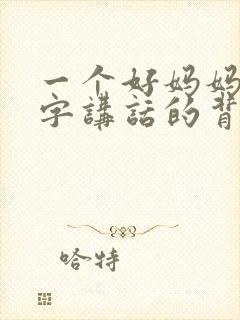 一个好妈妈
字講話的背
哈特